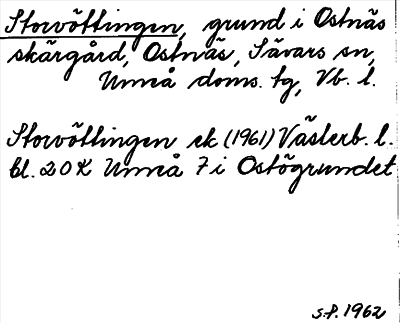 Storvöttingen, grund i Ostnäs
skärgård, Ostnäs, Sävars sn,
Umeå doms. tg, Vb. l.
Storvöttingen ek (1961) Västerb. l.
bl. 20 K Umeå 7 i Ostögrundet
s.p. 1962